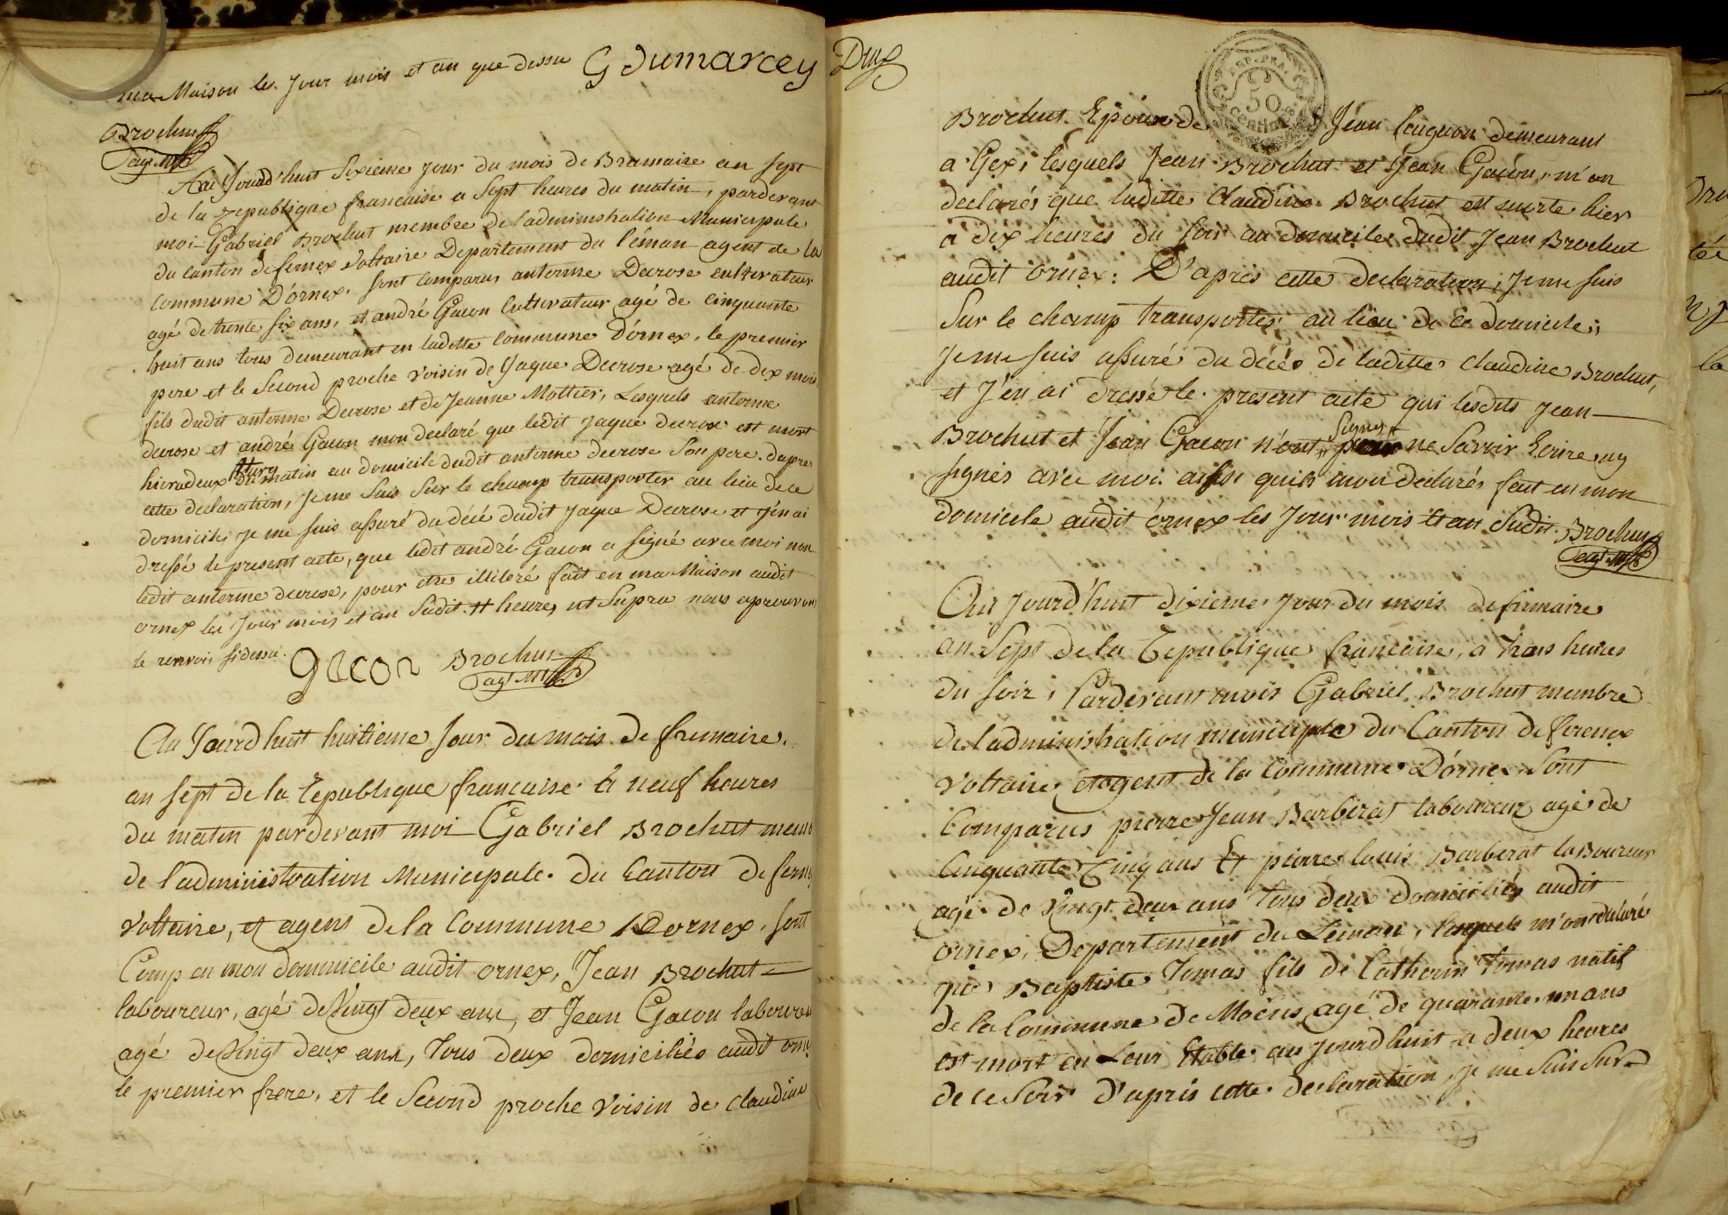 ma Maison les Jour mois et an que dessu G dumarcey
Brochut
agt Mp
Au Jourd'huit Sixieme Jour du mois de Brumaire an Sept
de la republique francaise a Sept heures du matin, pardevant
moi Gabriel Brochut membre de ladministration Municipale
du canton de fernex Voltaire Departement du léman agent de la
commune D'ornex. sont comparus antoinne Ducrose cultivateur
agé de trente six ans, et andré Gacon Cultivateur agé de cinquante
huit ans tous demeurant en ladette commune Dornex, le premier
pere et le Second proche voisin de Jaque Decrose agé de dix mois
fils dudit antoinne Decrose et de Jeanne Mottier, Lesquels antoinne
ducrose et andré Gacon mon declaré que ledit Jaque ducrose est mort
hier a deux heures du matin au domicile dudit antoinne ducrose Son pere. dapre
cette declaration, Je me Suis Sur le champ transporter au lieu de ce
domicile je me suis assuré du décé dudit Jaque Decrose et J'en ai
dressé le present acte, que ledit andré Gacon a signé avec moi non
ledit antoinne ducrose, pour etre illiteré fait en ma Maison audit
ornex les Jour mois et an Sudit. # heures ut Supra nous aprouvons
le renvois si dessu. Gacon Brochut
agt Mp
Au Jourd huit huitieme Jour du mois de frimaire
an sept de la republique francaise à neuf heures
du matin pardevant moi Gabriel Brochut mem
de l'administration Municipale du Canton de fern
Voltaire, et agens de la Commune Dornex, sont
Comp en mon domicile audit ornex, Jean Brochut
laboureur, agé de Vingt deux ans, et Jean Gacon laboureu
agé de Vingt deux ans, tous deux domiciliés audit orn
le premier frere, et le Second proche Voisin de Claudine
Brochut Epouse de Jean demeurant
a Gex, lesquels Jean Brochut et Jean Gacon, m'on
declarés que laditte Claudine Brochut est morte hier
a dix heures du soir au domiciles dudit Jean Brochut
audit ornex: D'après cette declaration, Je me suis
Sur le champ transportés au lieu de ce domicile;
Je me suis assuré du décés de laditte Claudine Brochut,
et J'en ai Dressé le present acte qui lesdits Jean
Brochut et Jean Gacon n'ont signés pour ne Savoir Ecrire ny
signés avec moi ainsi quils mon declarés fait en mon
domicile audit ornex les Jour mois et an Sudit. Brochut
agt Mp
Aui Jourd'huit dixieme Jour du mois de frimaire
an Sept de la Republique francaise, a trois heures
du soir; Pardevant mois Gabriel Brochut membre
de ladministration municipale du Canton de fernex
Voltaire, et agent de la Commune D'ornex Sont
Comparus pierre Jean Barberat laboureur agé de
Cinquante Cinq ans Et pierre louis Barberat laboureur
agé de Vingt deux ans tous deux domiciliés audit
ornex, Departement du Leman, lesquels m'on declaré
que Baptiste Tomas fils de Catherin Tomas natif
de la Commune de Moëns agé de quarante un ans
est mort en Leur Etable au Jourd huit a deux heures
de ce Soir D'apris cette declaration, je me Suis Sur